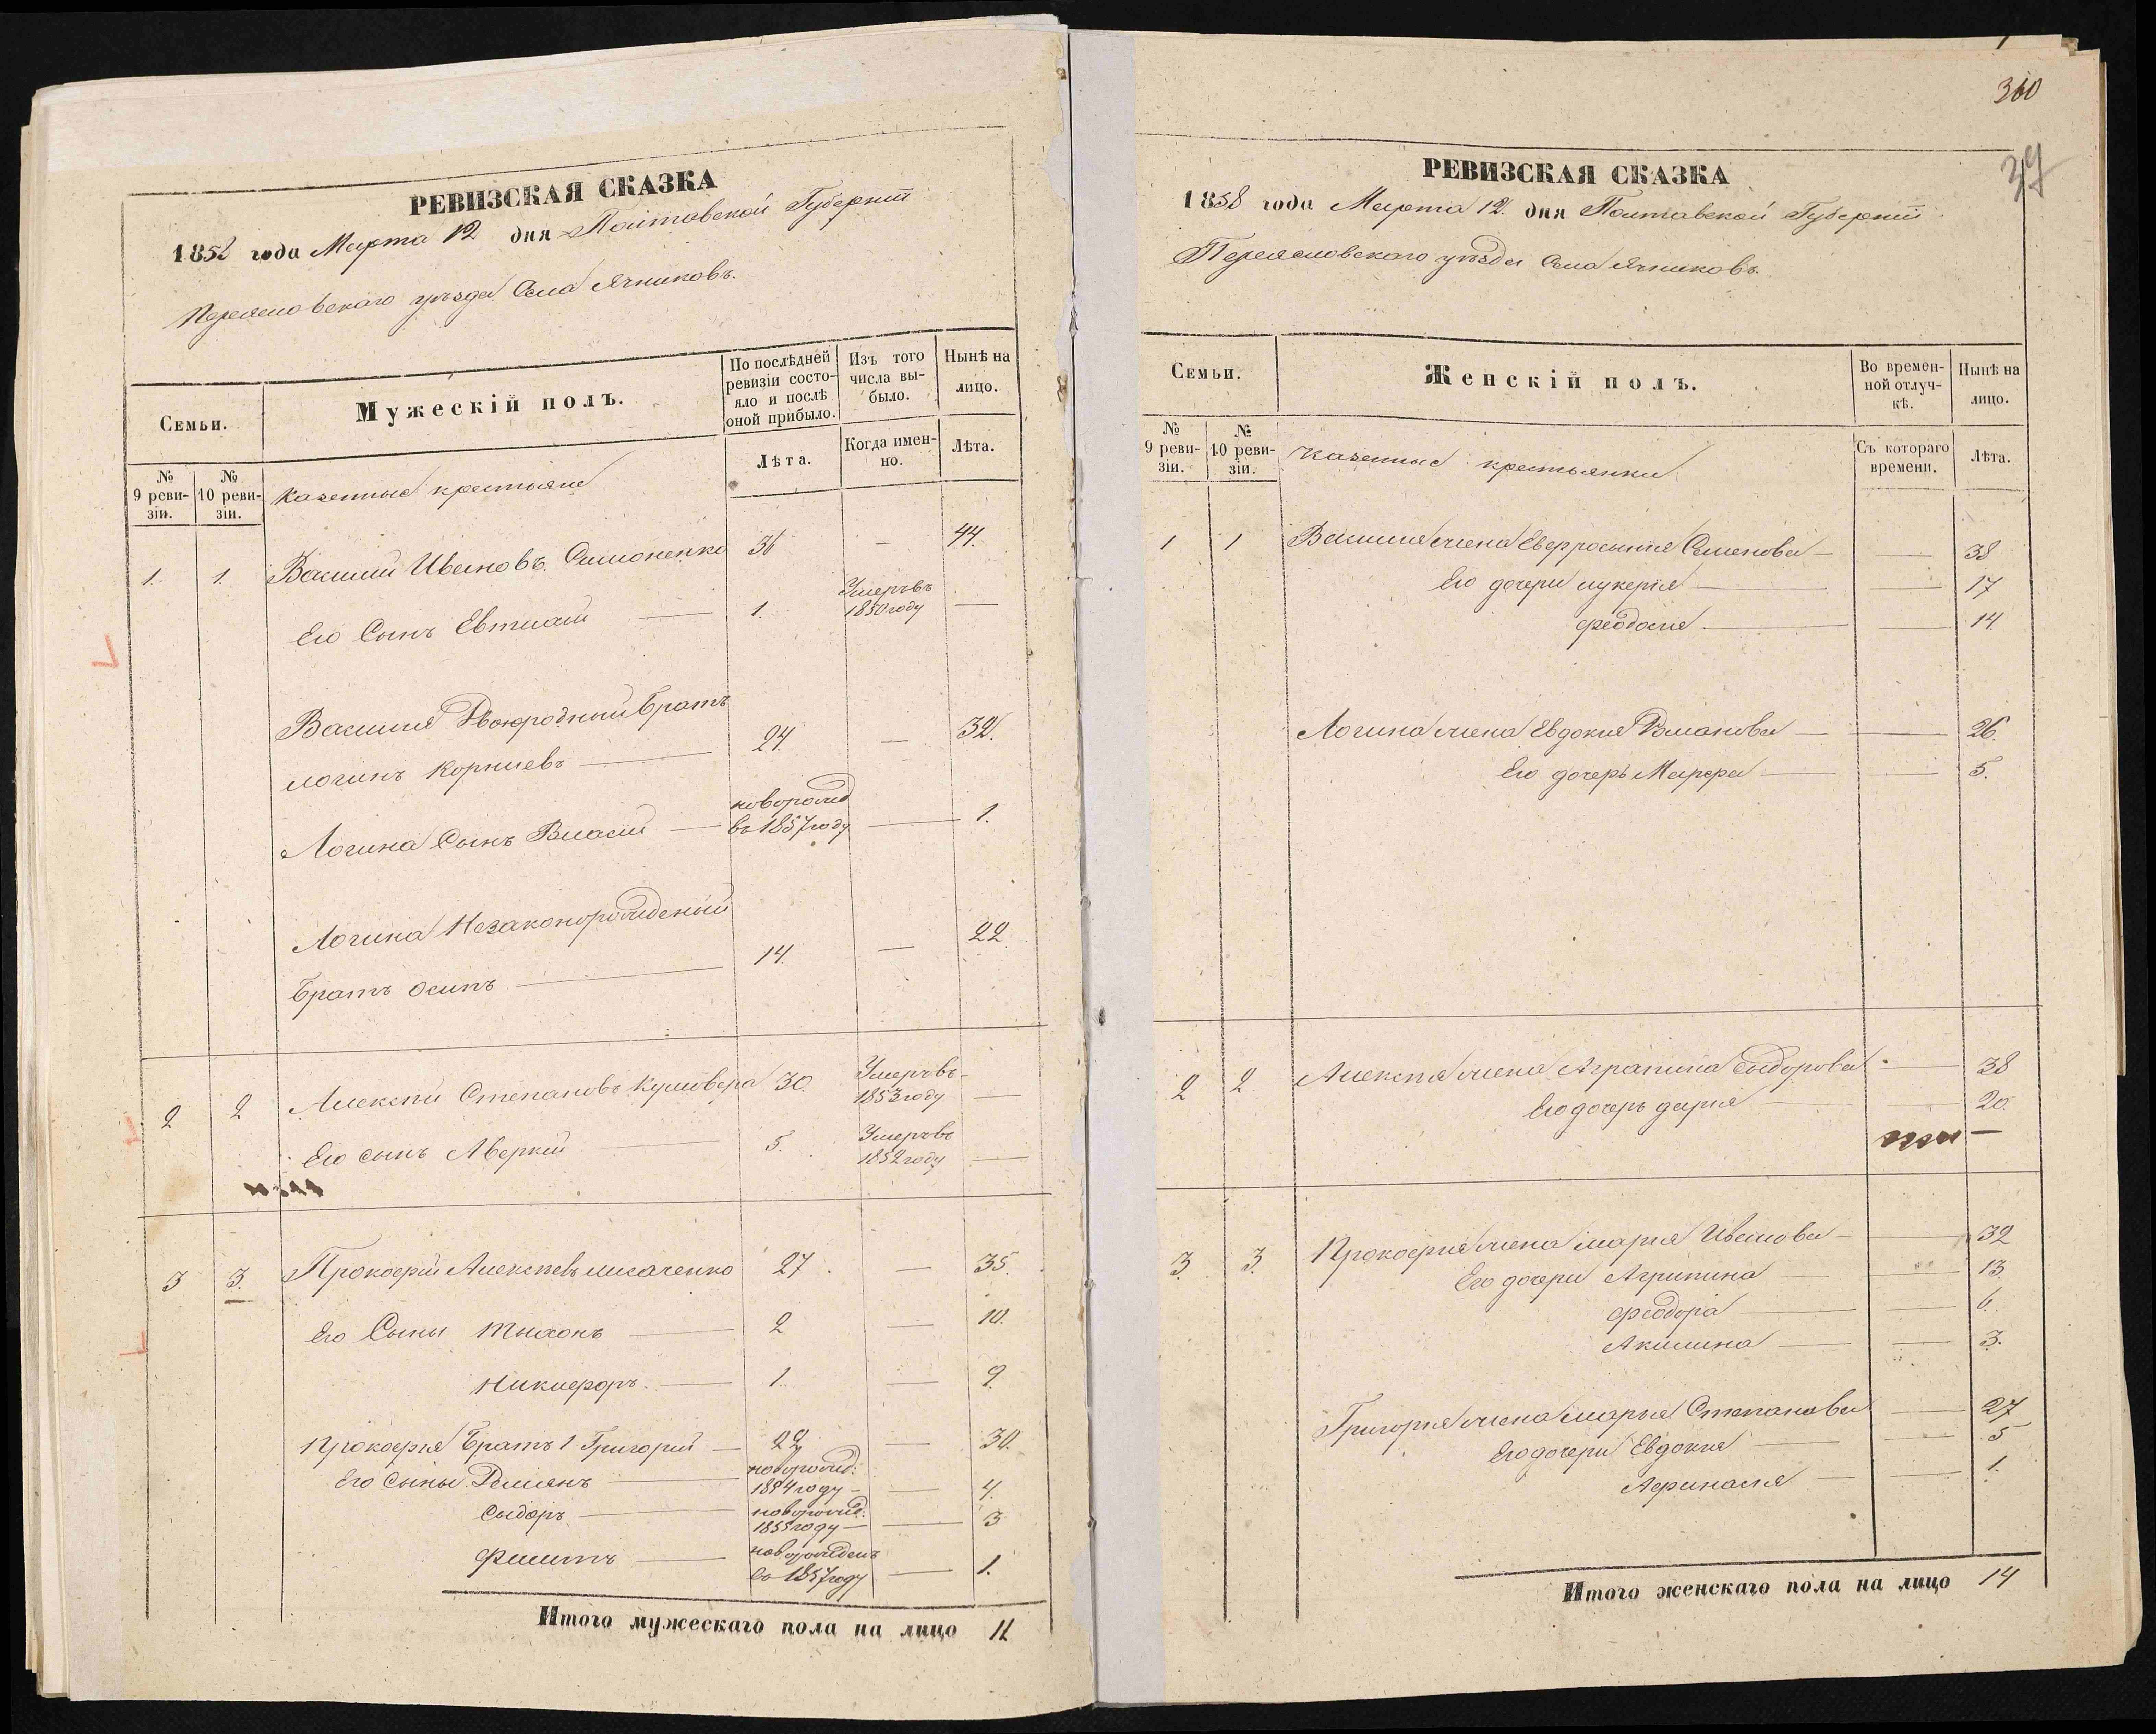 РЕВИЗСКАЯ СКАЗКА
1858 года Марта 12 дня Полтавской Губерніи
Переяславскаго уѣзда Села Ячниковъ.
Семьи.
Мужескій полъ.
По послѣдней ревизіи состояло и послѣ оной прибыло.
Изъ того числа выбыло.
Нынѣ на лицо.
№ 9 ревизіи.
№ 10 ревизіи.
Казенные крестьяне
Лѣта.
Когда именно.
Лѣта.
1. 1. Василий Ивановъ Симоненко 36 — 44.
Его Сынъ Евтихий — 1. Умеръ въ 1850 году —
Василия Двоюродный братъ
логинъ Корниевъ — 24. — 32.
Логина Сынъ Власий — новорожд въ 1857 году — 1.
Логина Незаконорожденый
братъ осипъ — 14. — 22.
2 2 Алексѣй Степановъ 30. Умеръ въ 1853 году —
Его сынъ Аверкий — 5. Умеръ въ 1852 году —
3 3. Прокофий Алексѣевъ лисаченко 27. — 35.
Его Сыны Тихонъ — 2 — 10.
Никифоръ. — 1. — 9.
Прокофия братъ 1 Григорий — 22 — 30.
Его Сыны Демянъ — новорожд: 1854 году — 4.
Сыдоръ — новорожд. 1855 году — 3
Филипъ — новорожденъ въ 1857 году — 1.
Итого мужескаго пола на лицо 11
360
37
РЕВИЗСКАЯ СКАЗКА
1858 года Марта 12. дня Полтавской Губерніи
Переясловскаго уѣзда Села Ячниковъ.
Семьи.
Женскій полъ.
Во временной отлучкѣ.
Нынѣ на лицо.
№ 9 ревизіи.
№ 10 ревизіи.
Казенные крестьянки
Съ котораго времени.
Лѣта.
1 1 Василия жена Евфросиния Семенова — — 38
Его дочери лукерия — — 17
феодосия — — 14.
Логина жена Евдокия Романова — — 26.
Его дочерь Марфа — — 5.
2 2 Алексѣя жена Агрипина Сыдорова — 38
Его дочерь дария — — 20.
3. 3. Прокофия жена мария Иванова — — 32
Его дочери Агрипина — — 13.
феодора — — 6.
Акилина — — 3.
Григория жена мария Степанова — 27
Его дочери Евдокия — — 5
Афанасия — — 1.
Итого женскаго пола на лицо 14